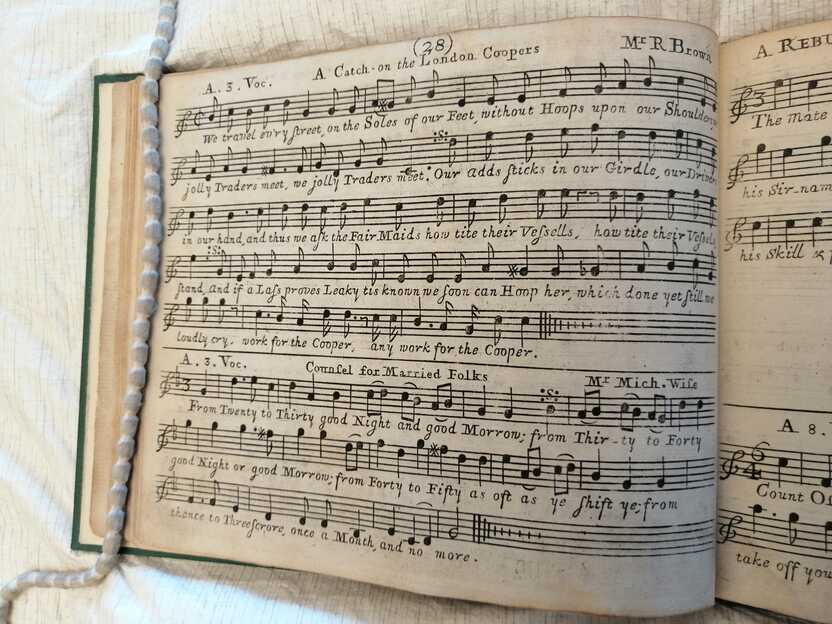 (28)
A. 3. Voc. A Catch on the London Coopers Mr R Brown
We travel ev'ry ſtreet, on the Soles of our Feet, without Hoops upon our Shoulders
jolly Traders meet, we jolly Traders meet. Our adds ſticks in our Girdle, our Drivers
in our hand, and thus we aſk the Fair Maids how tite their Veſsells, how tite their Veſsels
ſtand, and if a Laſs proves Leaky tis known we ſoon can Hoop her, which done yet ſtill we
loudly cry, work for the Cooper, any work for the Cooper.
A. 3. Voc. Counſel for Married Folks Mr Mich. Wiſe
From Twenty to Thirty good Night and good Morrow; from Thir-ty to Forty
good Night or good Morrow; from Forty to Fifty as oft as ye ſhift ye; from
thence to Threeſcrore, once a Month, and no more.
A REBU
3
The Mate
his Sir-nam
his Skill
A 8.
6
4
Count
take off you